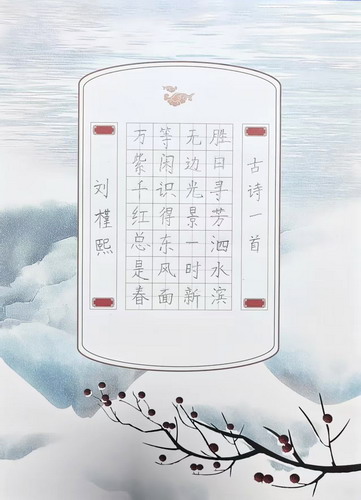 古诗一首
胜日寻芳泗水滨
无边光景一时新
等闲识得东风面
万紫千红总是春
刘槿熙